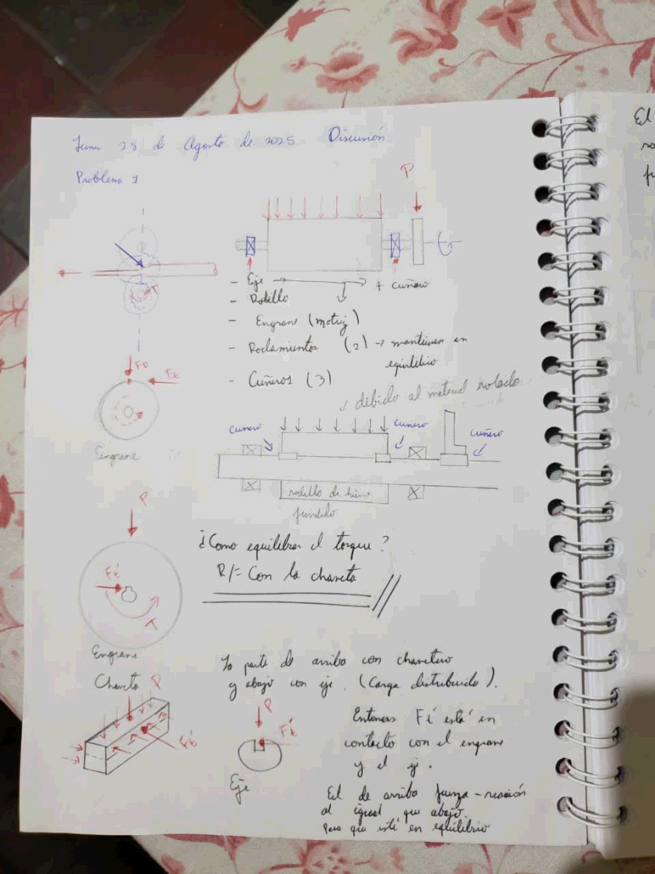 Lunes 25 de Agosto de 2025 Discusión
Problema 1
P
- Eje
+ cuñero
- Rodillo
- Engrane (motriz)
- Rodamientos (2) → mantienen en equilibrio
- Cuñeros (3)
debido al material rolado
Engrane
cuñero
cuñero
cuñero
rodillo de hierro
fundido
P
¿Como equilibrar el torque?
R/= Con la chaveta
T
Engrane
La parte de arriba con chavetero
y abajo con eje. (Carga distribuida).
Chaveta
P
P
Entonces Ft' esté en
contacto con el engrane
y el eje.
Ft'
Ft'
Eje
El de arriba fuerza-reacción
al igual que abajo.
Para que esté en equilibrio
El